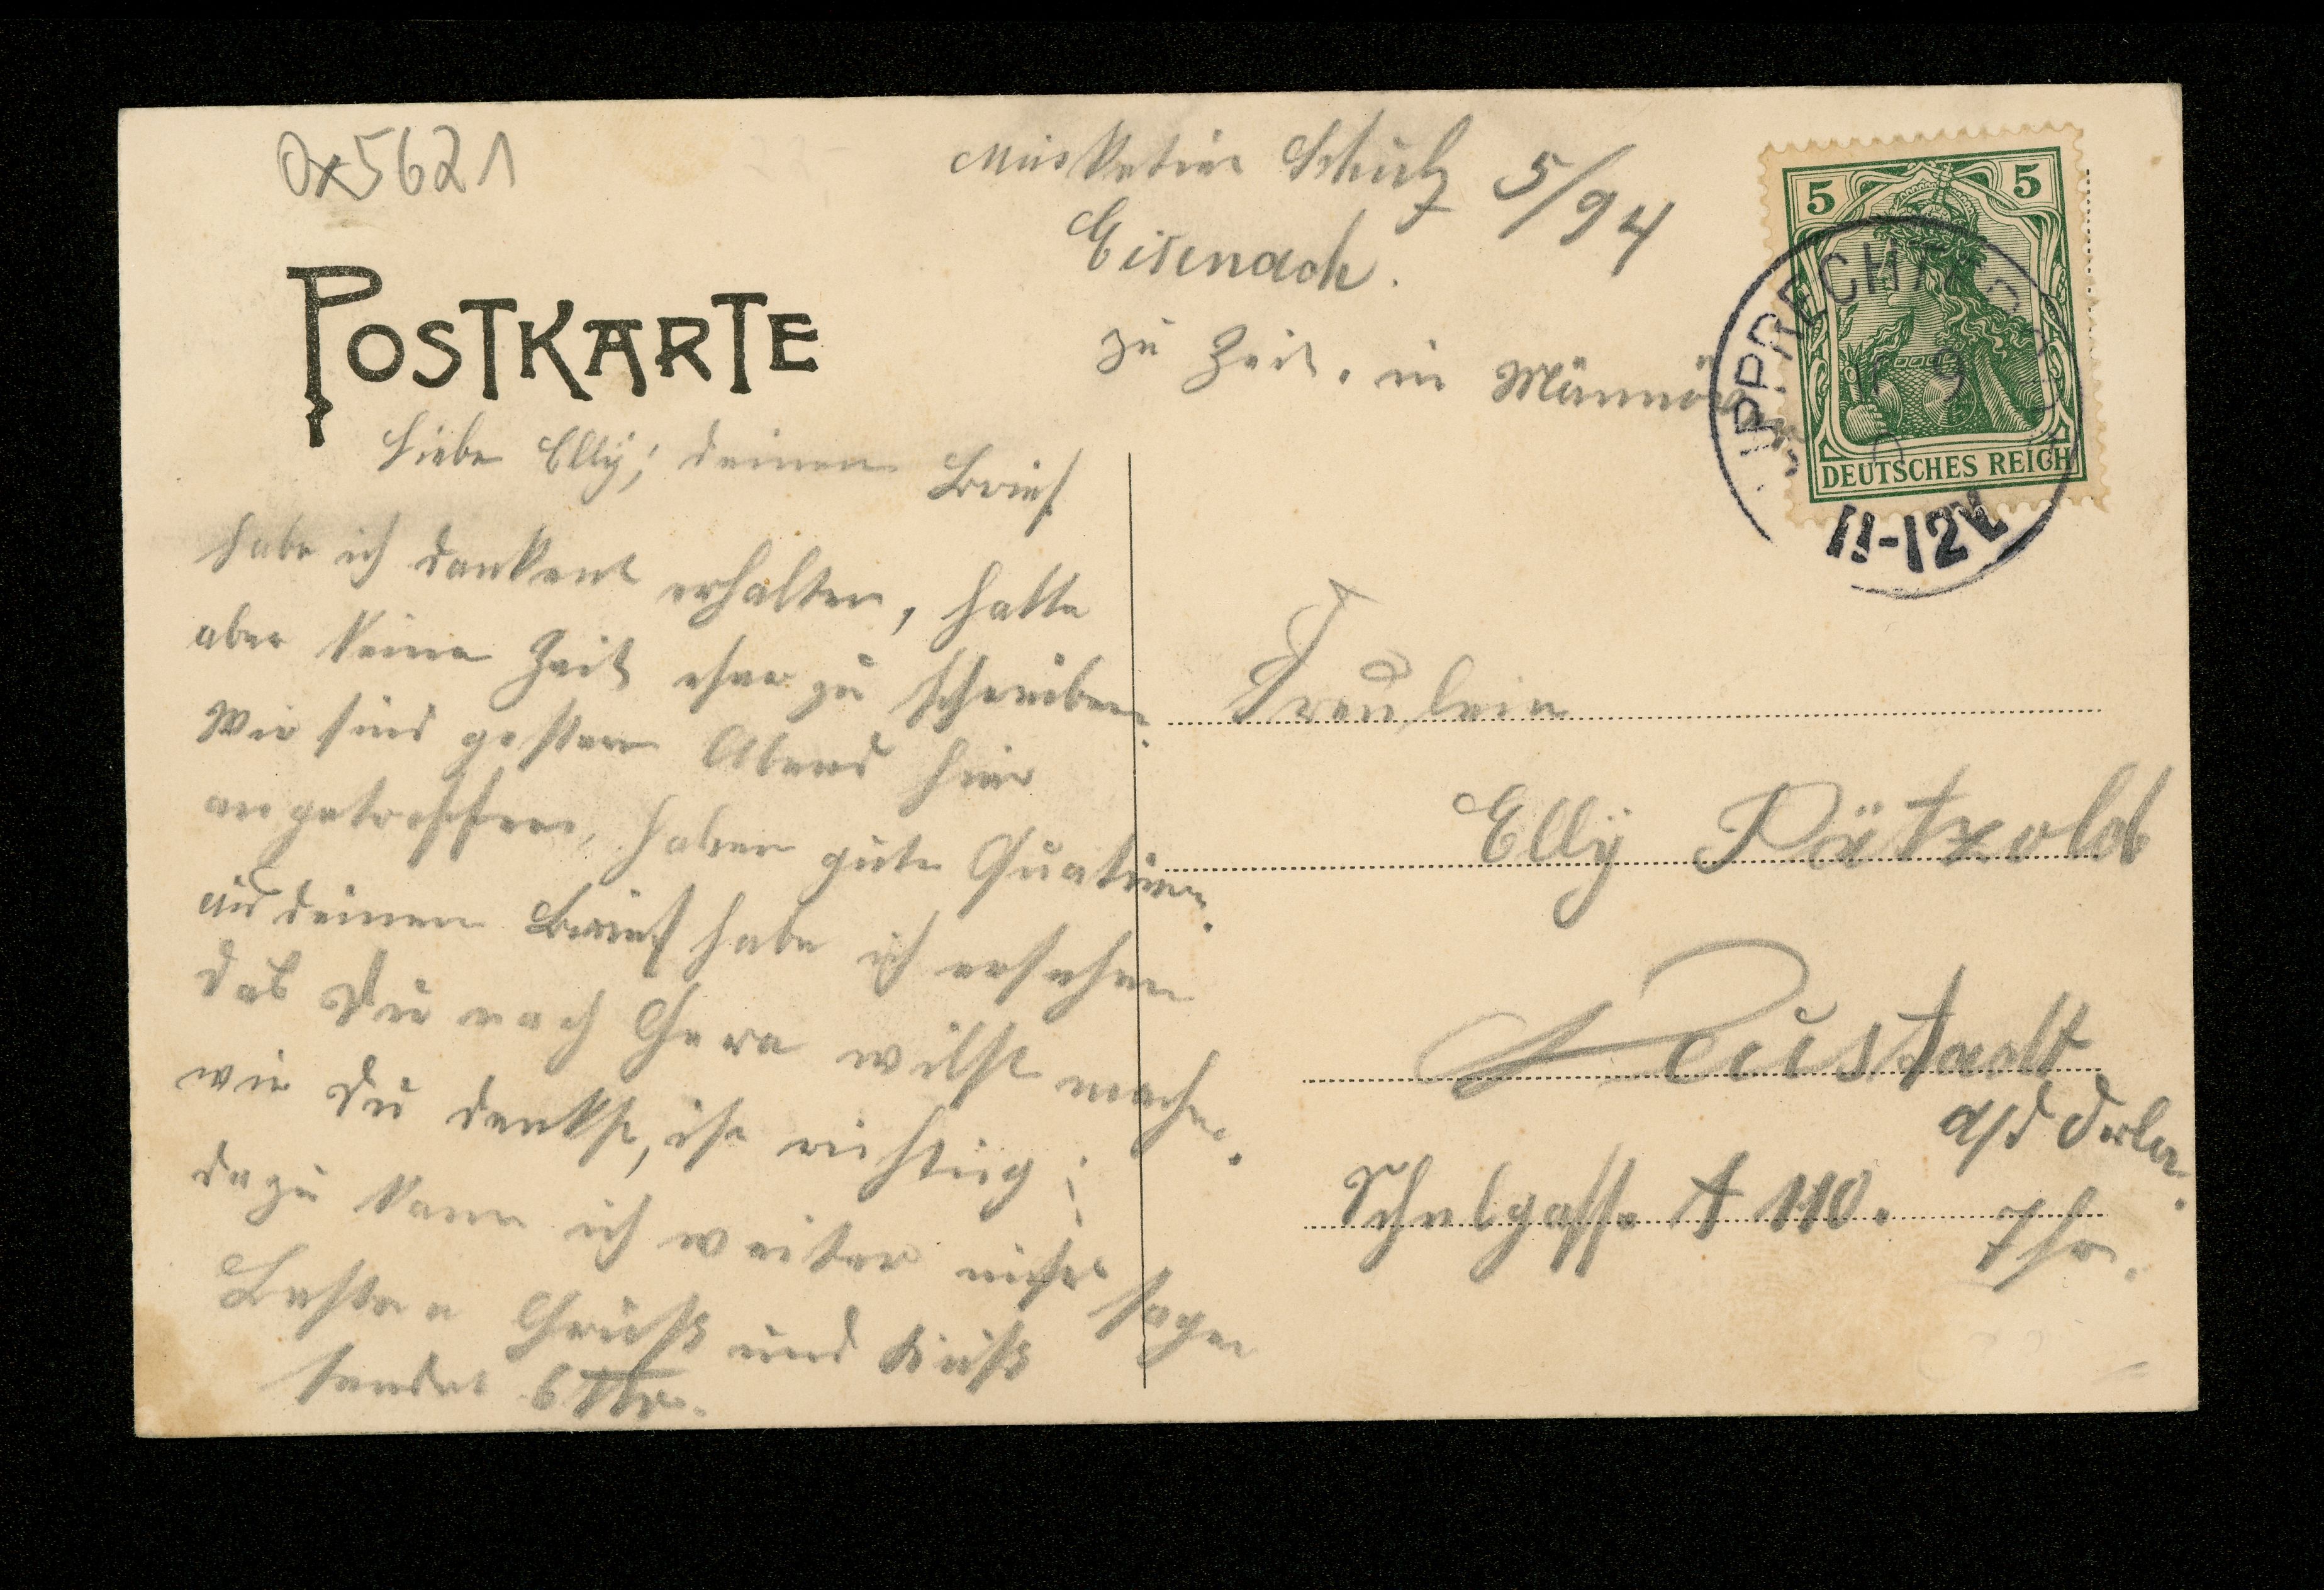 0x5621
Musketier Schulz 5/94
Eisenach.
zu Zeit. in
POSTKARTE
5 5
DEUTSCHES REICH
11-12V
Liebe Elly; deinen Brief
habe ich dankent erhalten, hatte
aber keine Zeit eher zu schreiben.
Wir sind gestern Abend hier
angetroffen, haben gute Quatiere.
Aus deinen Brief habe ich ersehen
daß Du nach Gera wilst machen.
wie Du denkst, ist richtig;
dazu kann ich weiter nichts sagen
Besten Gruß und Kuß
sendet
Fräulein
Elly Pätzold
Neustadt
a/d Orla.
Schulgasse A 110. Thr.